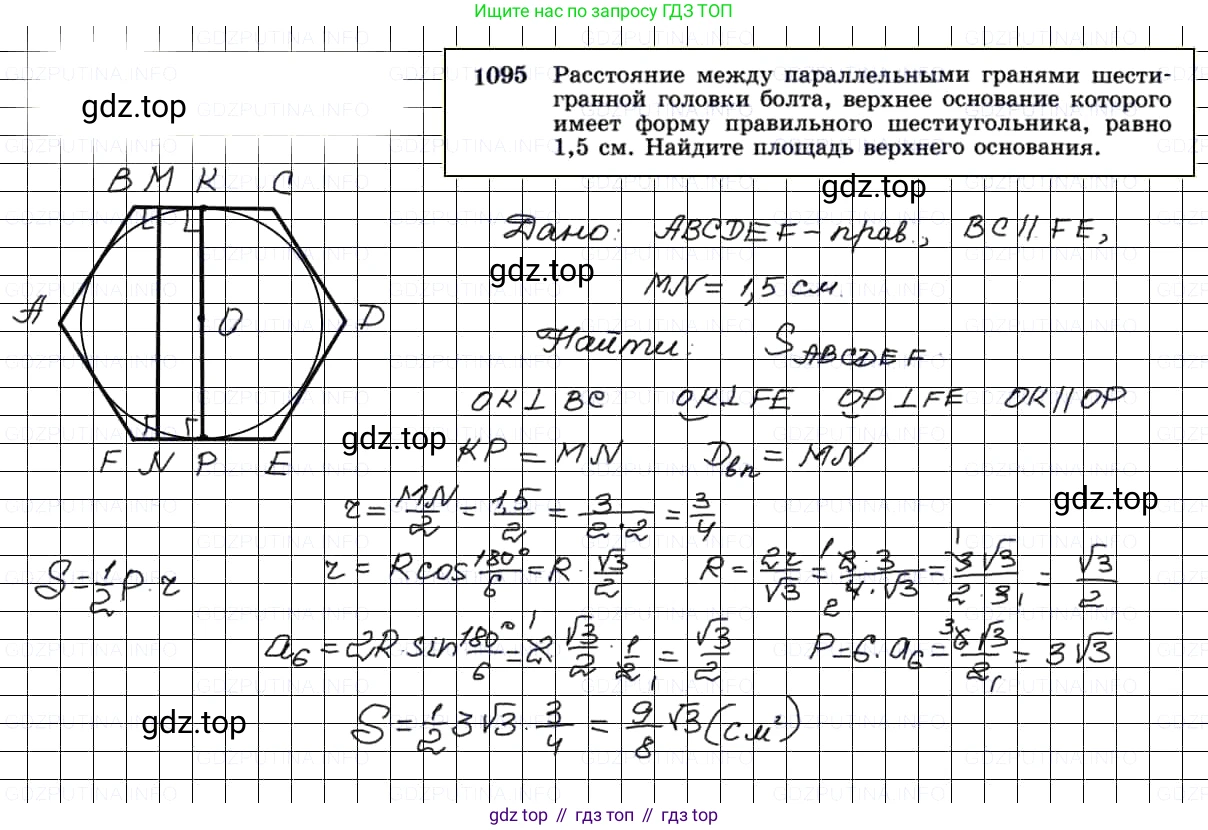 Ищите нас по запросу ГДЗ ТОП
1095 Расстояние между параллельными гранями шести-
гранной головки болта, верхнее основание которого
имеет форму правильного шестиугольника, равно
1,5 см. Найдите площадь верхнего основания.
gdz.top
gdz.top
B M K C
Дано: ABCDEF – прав., BC || FE,
gdz.top
MN = 1,5 см.
A O D
Найти: S_ABCDEF.
OK ⊥ BC OK ⊥ FE OP ⊥ FE OK || OP
gdz.top
F N P E
KP = MN D_вп = MN
gdz.top
r = MN/2 = 1,5/2 = 3/(2·2) = 3/4
S = 1/2 P·r
r = R cos 180°/6 = R·√3/2 R = 2r/√3 = 2·3/(4·√3) = 3√3/(2·3) = √3/2
a₆ = 2R·sin 180°/6 = 2 √3/2 · 1/2 = √3/2 P = 6·a₆ = 6√3/2 = 3√3
gdz.top
S = 1/2 3√3 · 3/4 = 9/8 √3 (см²)
gdz.top // гдз топ // gdz.top
GDZPUTINA.INFO